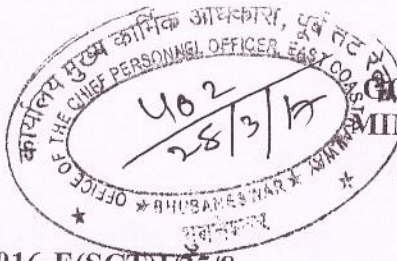 कार्यालय मुख्य कार्मिक अधिकारी, पूर्व तट रेलवे
OFFICE OF THE CHIEF PERSONNEL OFFICER, EAST COAST RAILWAY
402
28/3/17
★ BHUBANESWAR ★
भुवनेश्वर
MIN
016-E(SCT)I/25/8